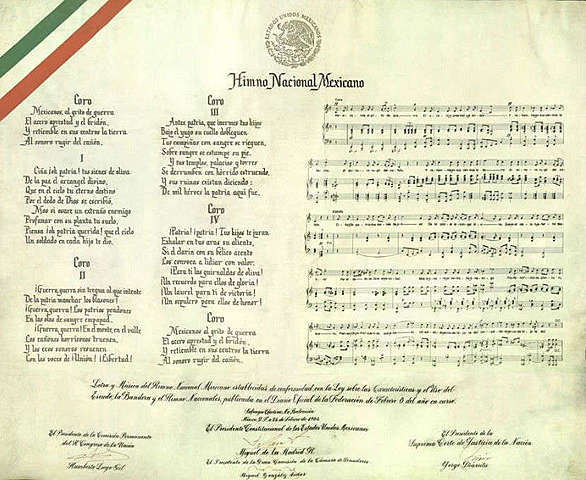 ESTADOS UNIDOS MEXICANOS
Himno Nacional Mexicano
Coro
Mexicanos, al grito de guerra
El acero aprestad y el bridón,
Y retiemble en sus centros la tierra
Al sonoro rugir del cañón.
I
Ciña ¡oh patria! tus sienes de oliva
De la paz el arcángel divino,
Que en el cielo tu eterno destino
Por el dedo de Dios se escribió.
Mas si osare un extraño enemigo
Profanar con su planta tu suelo,
Piensa ¡oh patria querida! que el cielo
Un soldado en cada hijo te dio.
Coro
II
¡Guerra, guerra sin tregua al que intente
De la patria manchar los blasones!
¡Guerra, guerra! Los patrios pendones
En las olas de sangre empapad.
¡Guerra, guerra! En el monte, en el valle
Los cañones horrísonos truenen,
Y los ecos sonoros resuenen
Con las voces de ¡Unión! ¡Libertad!
Coro
III
Antes, patria, que inermes tus hijos
Bajo el yugo su cuello dobleguen,
Tus campiñas con sangre se rieguen,
Sobre sangre se estampe su pie.
Y tus templos, palacios y torres
Se derrumben con hórrido estruendo,
Y sus ruinas existan diciendo:
De mil héroes la patria aquí fue.
Coro
IV
¡Patria! ¡Patria! Tus hijos te juran
Exhalar en tus aras su aliento,
Si el clarín con su bélico acento
Los convoca a lidiar con valor.
¡Para ti las guirnaldas de oliva!
¡Un recuerdo para ellos de gloria!
¡Un laurel para ti de victoria!
¡Un sepulcro para ellos de honor!
Coro
Mexicanos, al grito de guerra
El acero aprestad y el bridón,
Y retiemble en sus centros la tierra
Al sonoro rugir del cañón.
Letra y Música del Himno Nacional Mexicano establecidas de conformidad con la Ley sobre las Características y el Uso del
Escudo, la Bandera y el Himno Nacionales, publicada en el Diario Oficial de la Federación de Febrero 8 del año en curso.
Sufragio Efectivo. No Reelección
México, D.F. a 24 de Febrero de 1984
El Presidente Constitucional de los Estados Unidos Mexicanos
Miguel de la Madrid H.
El Presidente de la Comisión Permanente
del H. Congreso de la Unión
Humberto Lugo Gil
El Presidente de la Gran Comisión de la Cámara de Senadores
Miguel González Avelar
El Presidente de la
Suprema Corte de Justicia de la Nación
Jorge Iñárritu